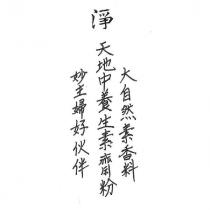 淨
大自然素香料
天地中養生素齋粉
妙主婦好伙伴